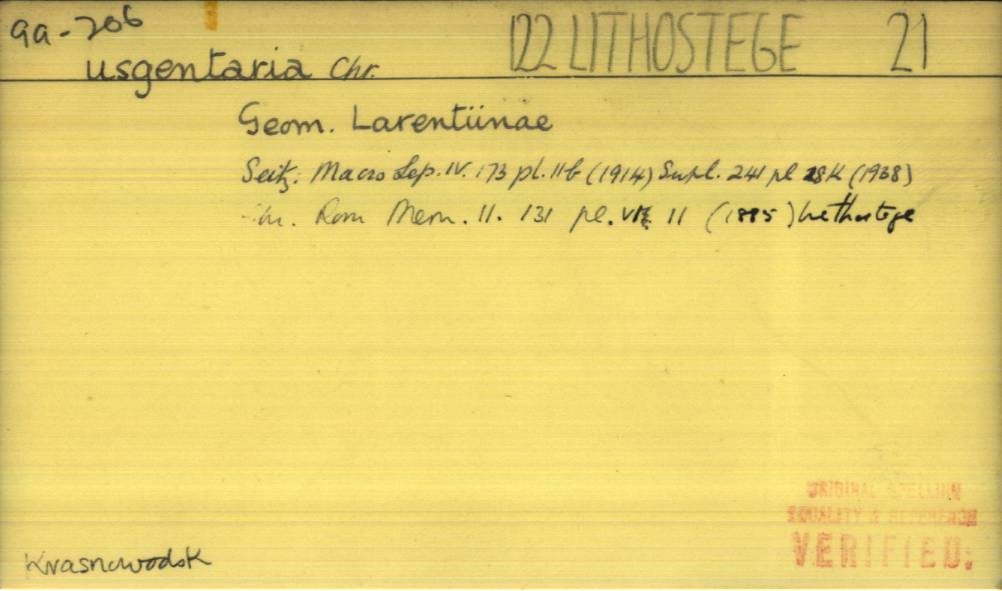 99-206
122 LITHOSTEGE 21
usgentaria Chr.
Geom. Larentiinae
Seitz. Macro Lep. IV. 173 pl. 11b (1914) Supl. 241 pl 18K (1938)
Rom Mem. 11. 131 pl. VII 11 (1885) Lithostege
ORIGINAL SPELLING
LOCALITY & REFERENCE
VERIFIED.
Krasnowodsk